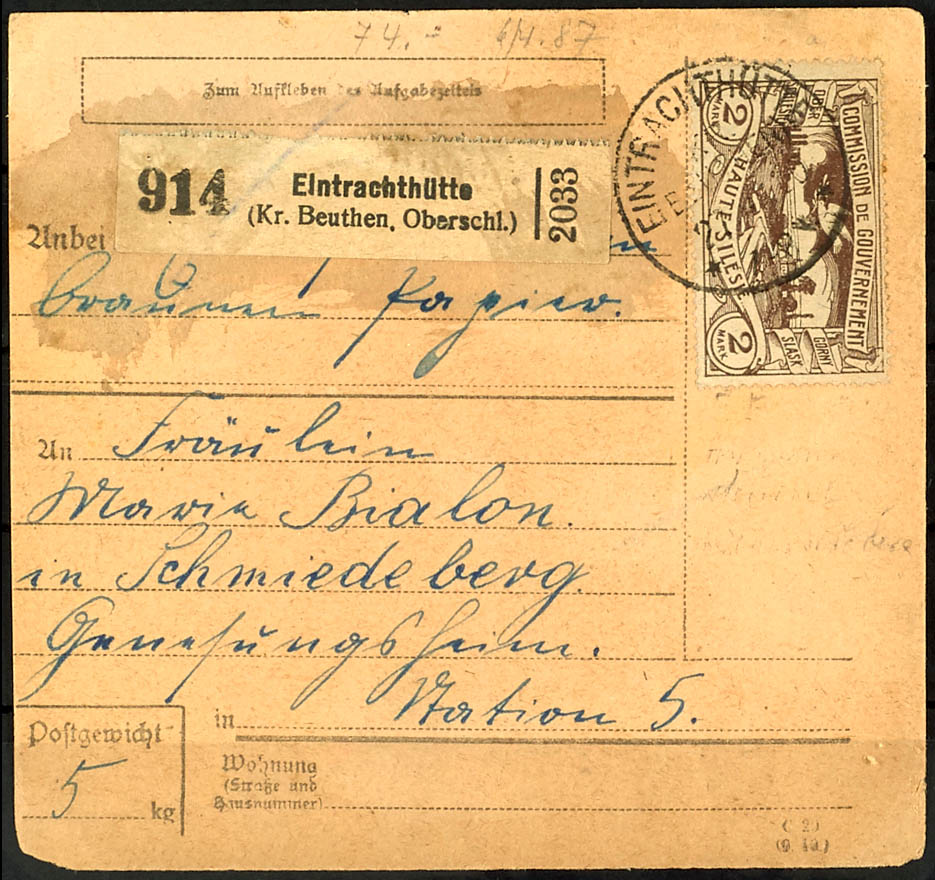 74.- 6/4.87
Zum Aufkleben des Aufgabezettels
914 Eintrachthütte
(Kr. Beuthen, Oberschl.)
2033
Anbei
braunem Papier.
An Fräulein
Marie Bialon.
in Schmiedeberg.
Genesungsheim.
in Station 5.
Postgewicht
5 kg
Wohnung
(Straße und
Hausnummer)
EINTRACHTHÜTTE
COMMISSION DE GOUVERNEMENT
HAUTE-SILÉSIE
2 MARK
2 MARK
GORNY
SLASK